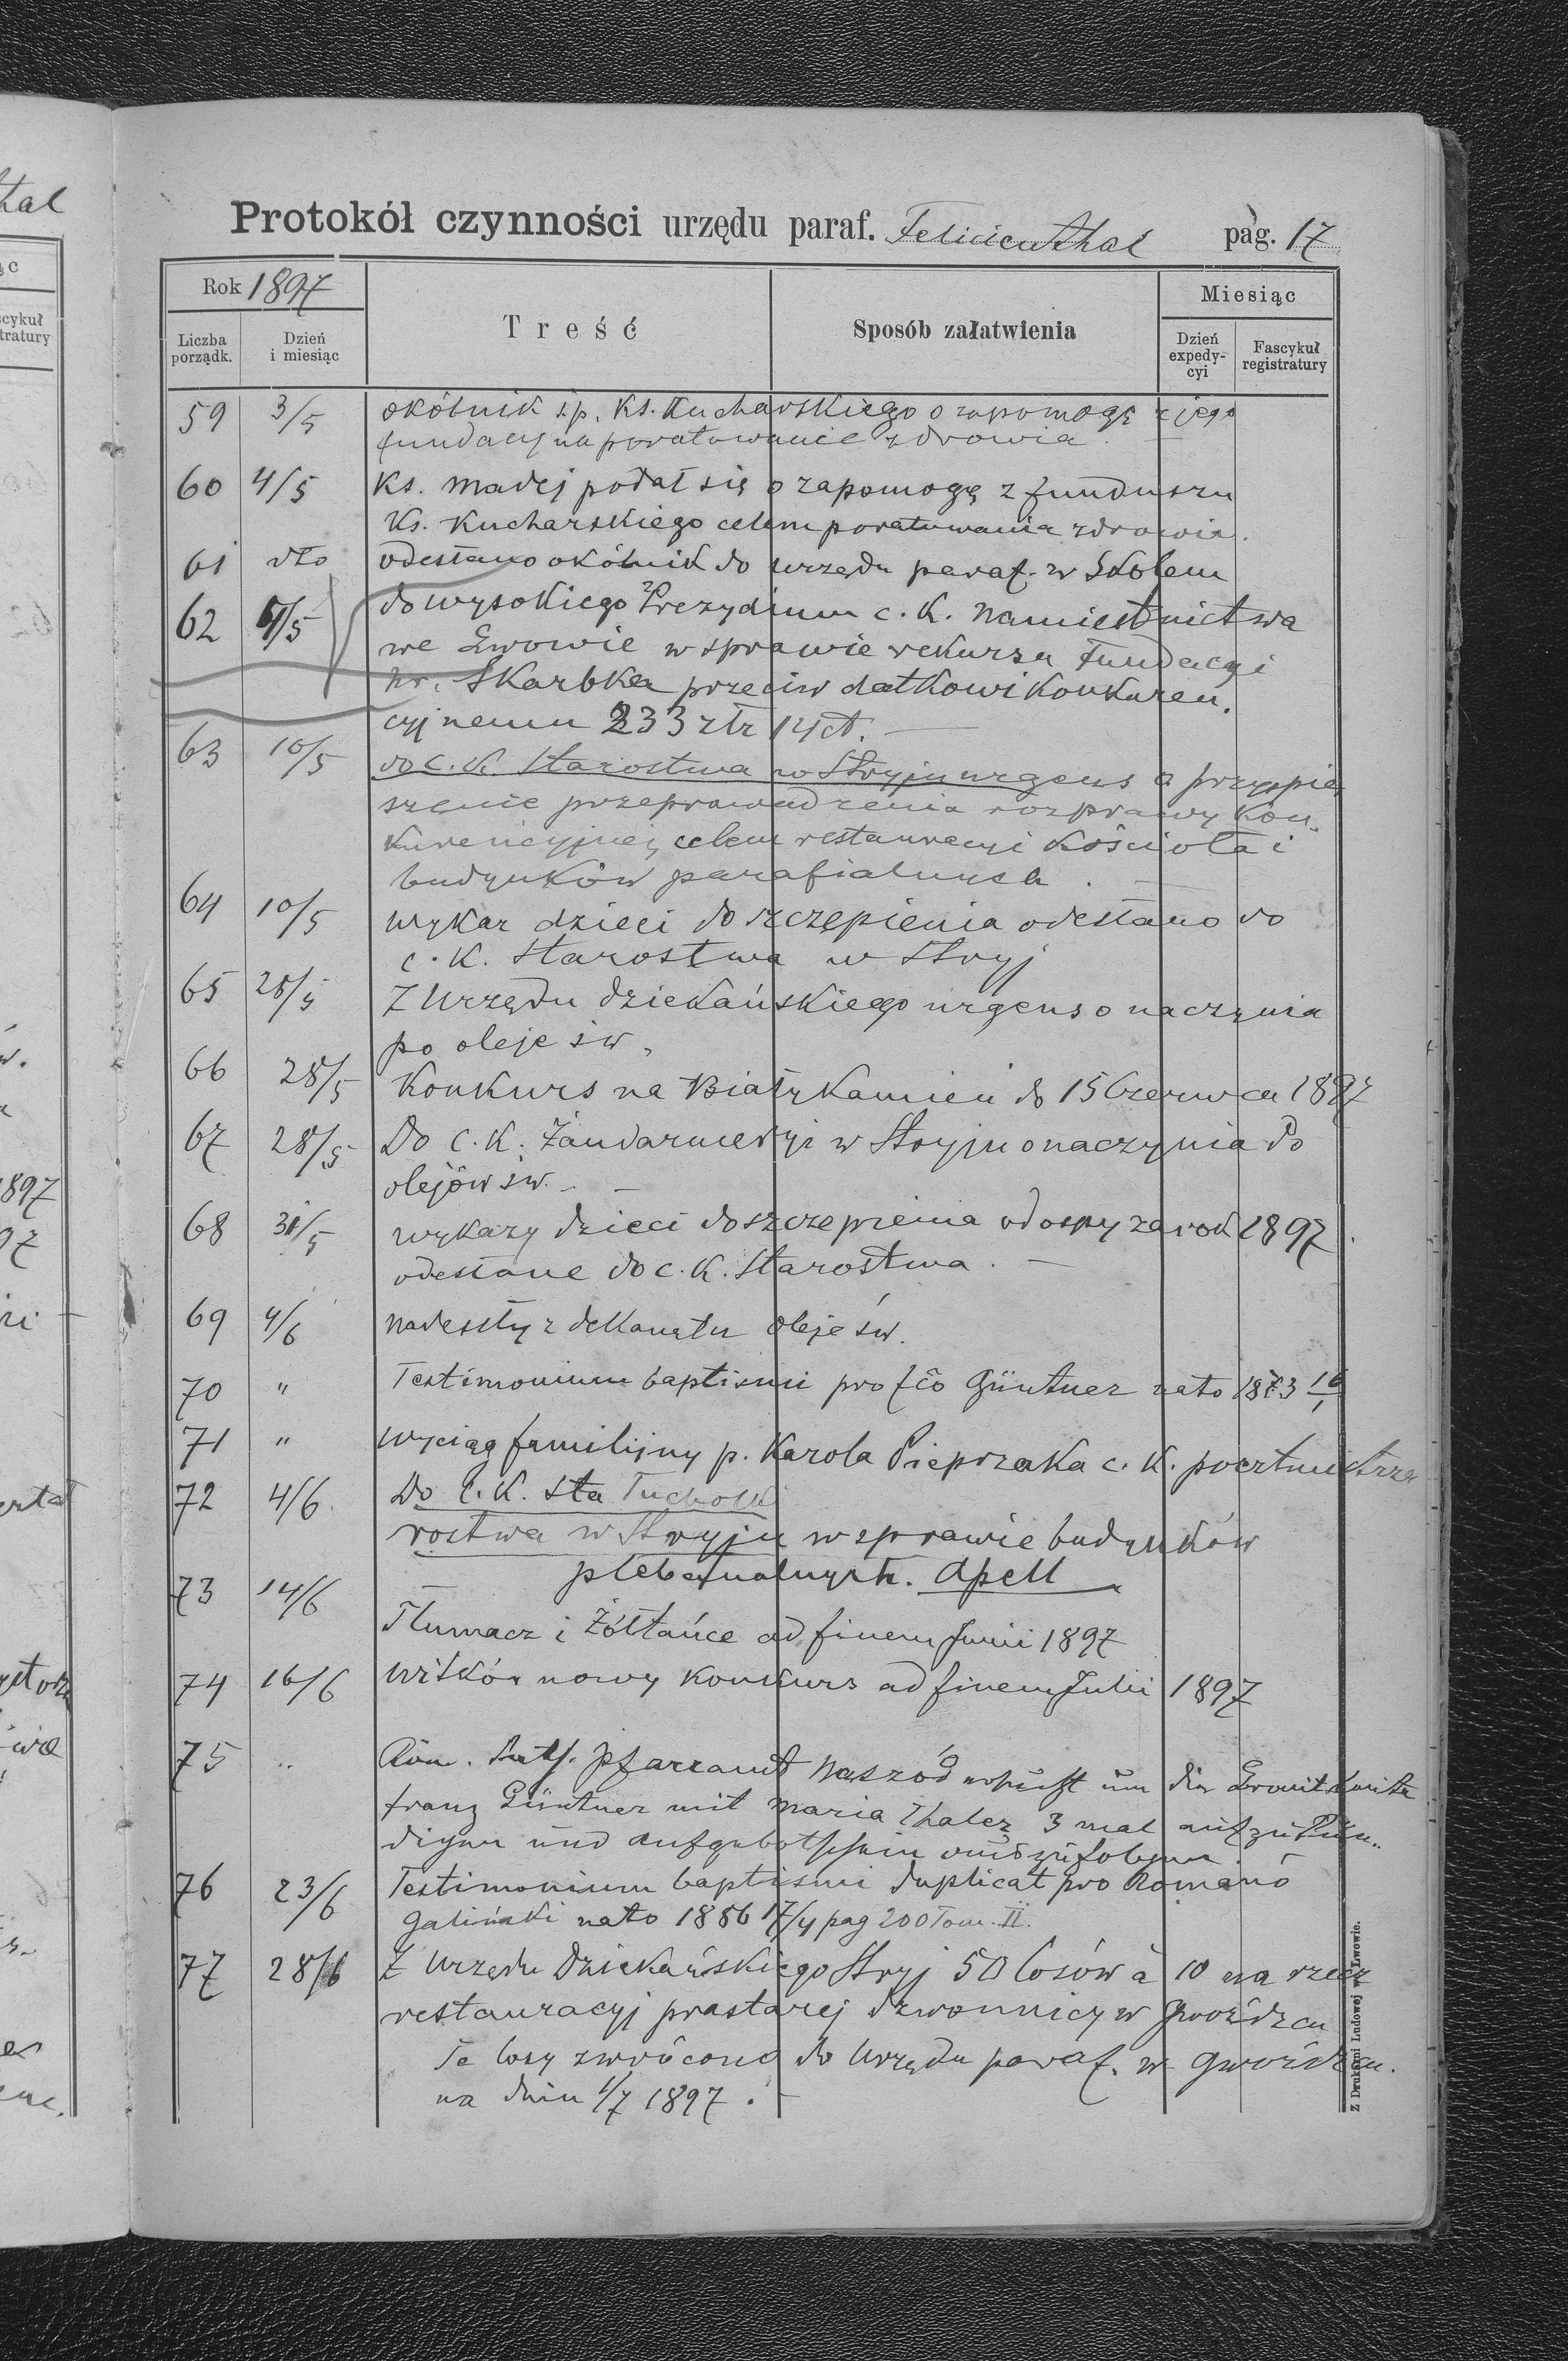 Protokół czynności urzędu paraf. Felicienthal pag. 17
Rok 1897
Miesiąc
Liczba porządk.
Dzień i miesiąc
Treść
Sposób załatwienia
Dzień expedy-cyi
Fascykuł registratury
59 3/5 okólnik śp. Ks. Kucharskiego o zapomogę z jego
fundacyj na poratowanie zdrowia.
60 4/5 Ks. Madej podał się o zapomogę z funduszu
Ks. Kucharskiego celem poratowania zdrowia.
61 dto odesłano okólnik do urzędu paraf. w Skolem
62 /5 do wysokiego Prezydium c. K. Namiestnictwa
we Lwowie w sprawie rekursu Fundacyi
hr. Skarbka przeciw datkowi Konkuren.
cyjnemu 233 złr 14 ct. —
63 10/5 do c. K. Starostwa w Stryju urgens o przyspie,
szenie przeprowadzenia rozprawy Kon-
kurencyjnej, celem restauracyi Kościoła i
budynków parafialnych . —
64 10/5 wykaz dzieci do szczepienia odesłano do
c. K. Starostwa w Stryj
65 28/5 Z Urzędu dziekańskiego urgens o naczynia
po oleje św,
66 28/5 Konkurs na Biały Kamień do 15 Czerwca 1897
67 28/5 Do C. K. Żandarmeryi w Stryju o naczynia do
olejów św. —
68 31/5 wykazy dzieci do szczepienia od ospy za rok 1897.
odesłane do c. K. Starostwa . —
69 4/6 nadeszły z dekanatu oleje św.
70 " Testimonium baptismi pro Güntner nato 1873
71 " Wyciąg familijny p. Karola Pieprzaka c. K. pocztmistrza
72 4/6. Do C. K. Sta Tucholki
rostwa w Stryju w sprawie budynków
plebanalnych. Apell
73 14/6 — Tłumacz i Żółtańce ad finem Junii 1897
74 16/6 nowy Konkurs ad finem Julii 1897
75 " Röm. Kath. Pfarramt Naszód ersucht um die Brautleute
Franz Güntner mit Maria Thaler 3 mal aufzukün..
digen und Aufgebotschein auszufolgen.
76 23/6 Testimonium baptismi duplicat pro Romano
Galiński nato 1856 17/4 pag 200 Tom. II.
77 28/6 Z Urzędu Dziekańskiego Stryj 50 losów à 10 na rzecz
restauracyj prastarej dzwonnicy w Gwoźdzcu
Te losy zwrócono do Urzędu paraf. w Gwoźdzcu.
na dniu 1/7 1897 . —
Z Drukarni Ludowej we Lwowie.